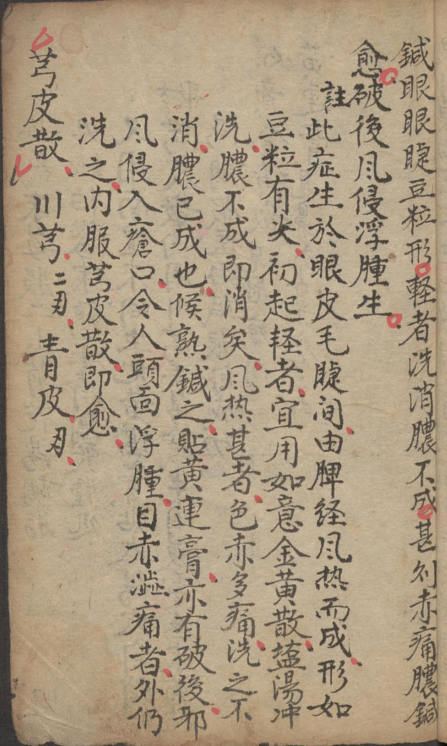 鍼眼眼睫豆粒形軽者洗消膿不成甚則赤痛膿鍼
愈破後风侵浮腫生
註此症生於眼皮毛睫间由脾经风热而成形如
豆粒有尖初起軽者宜用如意金黄散塩湯冲
洗膿不成即消矣风热甚者色赤多痛洗之不
消膿已成也候熟鍼之貼黄連膏亦有破後邪
风侵入瘡口令人頭面浮腫目赤澁痛者外仍
洗之内服芎皮散即愈
芎皮散 川芎二刃 青皮刃